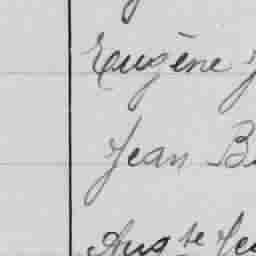 Eugène J
Jean B
Aug te Jea